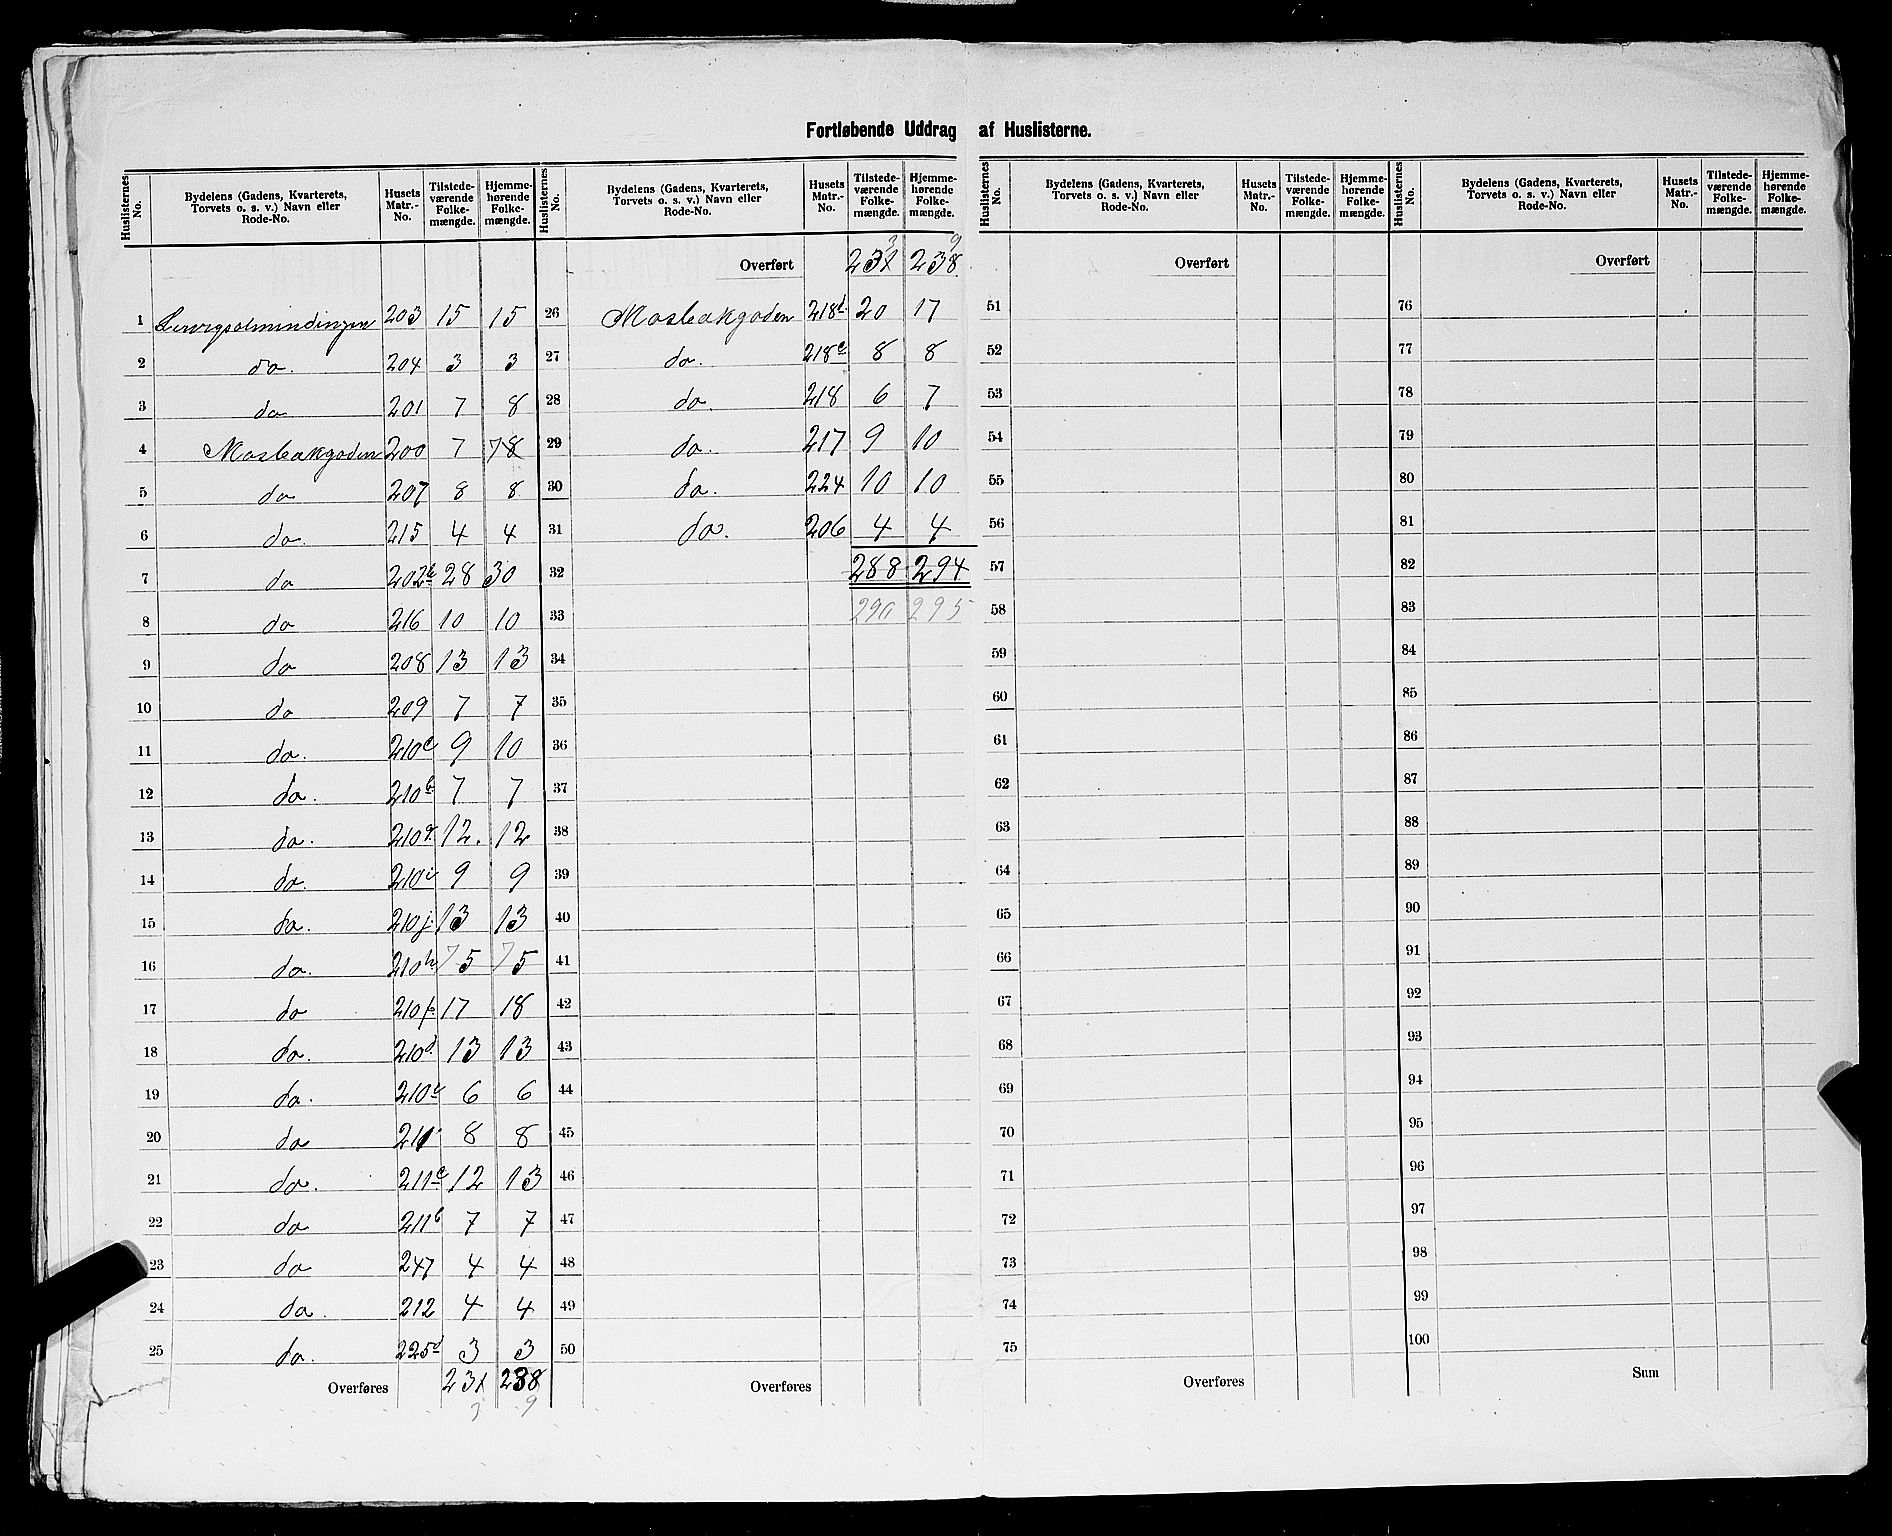 Fortløbende Uddrag af Huslisterne.
Huslisternes No. | Bydelens (Gadens, Kvarterets, Torvets o. s. v.) Navn eller Rode-No. | Husets Matr.-No. | Tilstede-værende Folke-mængde. | Hjemme-hørende Folke-mængde.
1 203 15 15
2 do. 204 3 3
3 do 201 7 8
4 Mosbækgaden 200 7 7 8
5 do 207 8 8
6 do. 215 4 4
7 do 202b 28 30
8 do 216 10 10
9 do 208 13 13
10 do 209 7 7
11 do. 210e 9 10
12 do. 210b 7 7
13 do. 210g 12. 12
14 do. 210i 9 9
15 do. 210j. 13 13
16 do. 210h 7 5 7 5
17 do 210f. 17 18
18 do. 210d. 13 13
19 do. 210c 6 6
20 do 210 8 8
21 do. 211c 12 13
22 do 211b 7 7
23 do 247 4 4
24 do. 212 4 4
25 do. 225d 3 3
Overføres 231 238
3 9
Huslisternes No. | Bydelens (Gadens, Kvarterets, Torvets o. s. v.) Navn eller Rode-No. | Husets Matr.-No. | Tilstede-værende Folke-mængde. | Hjemme-hørende Folke-mængde.
3 9
Overført 231 238
26 Mosbækgaden 218d. 20 17
27 do. 218c 8 8
28 do. 218 6 7
29 do. 217 9 10
30 do. 224 10 10
31 do. 206 4 4
32 288 294
33 290 295
34
35
36
37
38
39
40
41
42
43
44
45
46
47
48
49
50
Overføres
Huslisternes No. | Bydelens (Gadens, Kvarterets, Torvets o. s. v.) Navn eller Rode-No. | Husets Matr.-No. | Tilstede-værende Folke-mængde. | Hjemme-hørende Folke-mængde.
Overført
51
52
53
54
55
56
57
58
59
60
61
62
63
64
65
66
67
68
69
70
71
72
73
74
75
Overføres
Huslisternes No. | Bydelens (Gadens, Kvarterets, Torvets o. s. v.) Navn eller Rode-No. | Husets Matr.-No. | Tilstede-værende Folke-mængde. | Hjemme-hørende Folke-mængde.
Overført
76
77
78
79
80
81
82
83
84
85
86
87
88
89
90
91
92
93
94
95
96
97
98
99
100
Sum